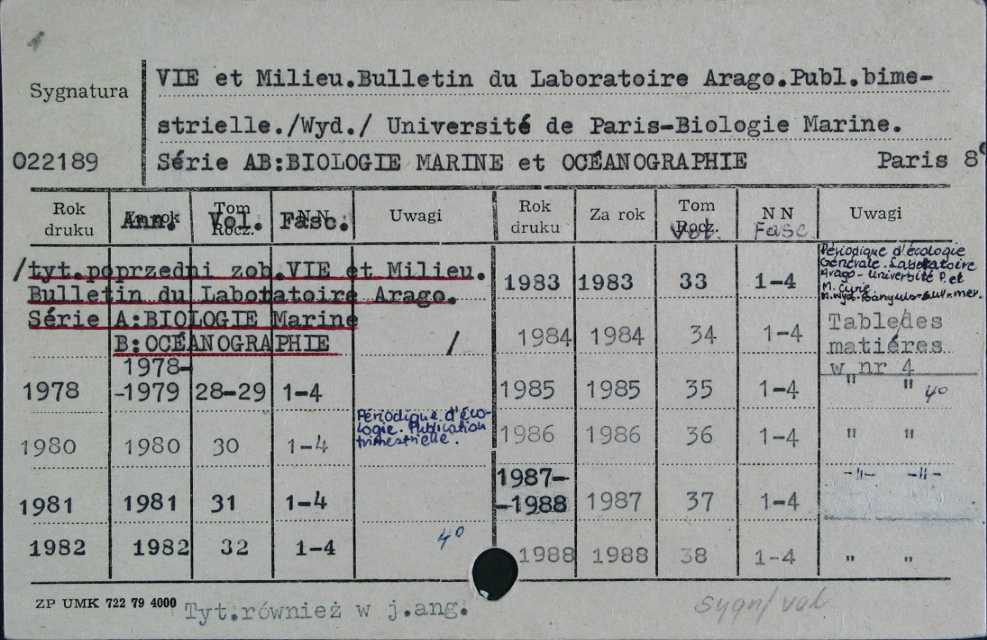 Sygnatura
022189
VIE et Milieu.Bulletin du Laboratoire Arago.Publ.bime-
strielle./Wyd./ Université de Paris-Biologie Marine.
Série AB:BIOLOGIE MARINE et OCÉANOGRAPHIE Paris 8°
Rok druku Ann. Vol. Tom Rocz. Fasc. Uwagi Rok druku Za rok Tom Rocz. Vol. NN Fasc. Uwagi
/tyt.poprzedni zob.VIE et Milieu.
Bulletin du Laboratoire Arago.
Série A:BIOLOGIE Marine
B:OCÉANOGRAPHIE /
1978 1978-
-1979 28-29 1-4
1980 1980 30 1-4 Périodique d'éco-
logie. Publication
trimestrielle.
1981 1981 31 1-4
1982 1982 32 1-4 4°
1983 1983 33 1-4 Périodique d'écologie
Générale. Laboratoire
Arago - Université P. et
M. Curie
M. wyd. Banyuls-sur-mer.
1984 1984 34 1-4 Table des
matiéres
w nr 4
1985 1985 35 1-4 " " 4°
1986 1986 36 1-4 " "
1987-
-1988 1987 37 1-4 -"- -"-
1988 1988 38 1-4 " "
ZP UMK 722 79 4000 Tyt.również w j.ang. sygn/vol